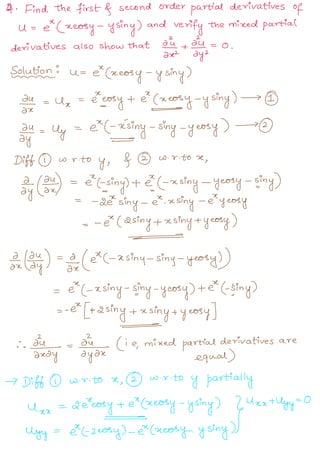 4. Find the first & second order partial derivatives of
u = eˣ(xcosy - ysiny) and verify the mixed partial
derivatives also show that ∂²u/∂x² + ∂²u/∂y² = 0.
Solution : u = eˣ(xcosy - y siny)
∂u/∂x = uₓ = eˣcosy + eˣ(xcosy - ysiny) → ①
∂u/∂y = u_y = eˣ(-xsiny - siny - ycosy) → ②
Diff ① w·r·to y, & ② w·r·to x,
∂/∂y (∂u/∂x) = eˣ(-siny) + eˣ(-xsiny - ycosy - siny)
= -2eˣsiny - eˣ·xsiny - eˣycosy
= -eˣ(2siny + xsiny + ycosy)
∂/∂x (∂u/∂y) = ∂/∂x (eˣ(-xsiny - siny - ycosy))
= eˣ(-xsiny - siny - ycosy) + eˣ(-siny)
= -eˣ[+2siny + xsiny + ycosy]
∴ ∂²u/∂x∂y = ∂²u/∂y∂x (i e, mixed partial derivatives are
equal)
→ Diff ① w·r·to x, ② w·r·to y partially
uₓₓ = 2eˣcosy + eˣ(xcosy - ysiny) } uₓₓ + u_yy = 0
u_yy = eˣ(-2cosy) - eˣ(xcosy - ysiny)